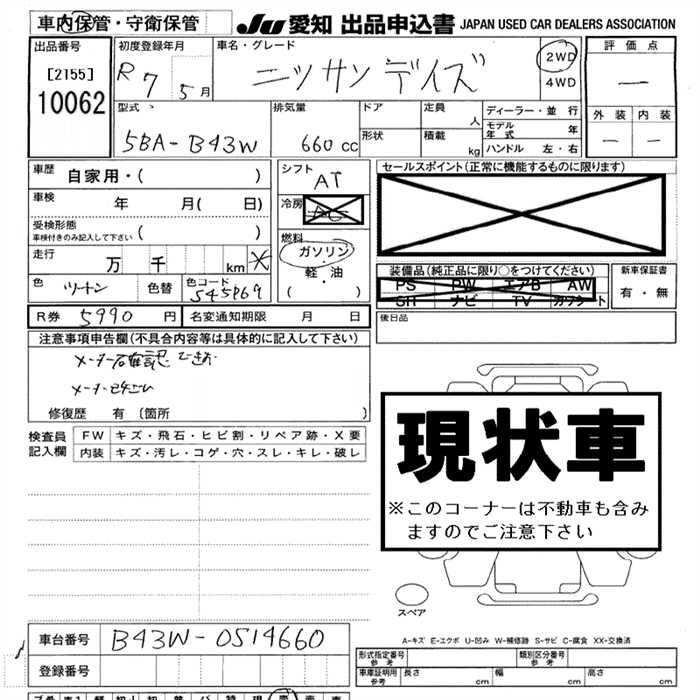 車内保管・守衛保管
JU 愛知 出品申込書 JAPAN USED CAR DEALERS ASSOCIATION
出品番号 初度登録年月 車名・グレード 2WD 4WD 評価点
[2155]
10062
R 7 5月 ニッサン デイズ —
型式 排気量 ドア 定員 人 ディーラー・並行 外装 内装
5BA-B43W 660cc 形状 積載 kg モデル年式 年 — —
ハンドル 左・右
車歴 自家用・( ) シフト AT セールスポイント(正常に機能するものに限ります)
車検 年 月( 日) 冷房 AC
受検形態 車検付きのみ記入して下さい ( ) 燃料 ガソリン・軽・油 ( )
走行 万 千 km
装備品(純正品に限り○をつけてください) 新車保証書
PS PW エアB AW 有・無
SH ナビ TV カワシート
色 ツートン 色替 色コード
後日品
R券 5990 円 名変通知期限 月 日
注意事項申告欄(不具合内容等は具体的に記入して下さい)
メーター確認できず
修復歴 有 〔箇所 〕
現状車
※このコーナーは不動車も含みますのでご注意下さい
検査員記入欄 FW キズ・飛石・ヒビ割・リペア跡・X要
内装 キズ・汚レ・コゲ・穴・スレ・キレ・破レ
スペア
A-キズ E-エクボ U-凹み W-補修跡 S-サビ C-腐食 XX-交換済
車台番号 B43W-0514660
登録番号
形式指定番号 参考 類別区分番号 参考
車庫証明用 参考 長さ cm 幅 cm 高さ cm